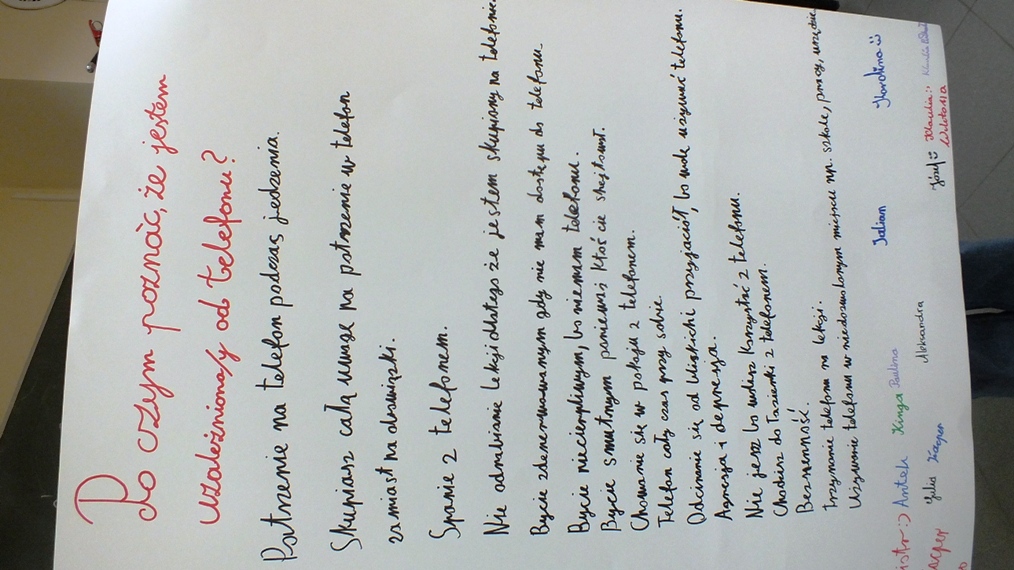 Po czym poznać, że jestem
uzależniona/y od telefonu?
Patrzenie na telefon podczas jedzenia.
Skupiasz całą uwagę na patrzenie w telefon
zamiast na obowiązki.
Spanie z telefonem.
Nie odrabianie lekcji dlatego że jestem skupiany na telefonie.
Bycie zdenerwowanym gdy nie mam dostępu do telefonu.
Bycie niecierpliwym, bo niemam telefonu.
Bycie smutnym ponieważ ktoś cie
Chowanie się w pokoju z telefonem.
Telefon cały czas przy sobie.
Odcinanie się od bliskich przyjaciół, bo wole używać telefonu.
Agresja i depresja.
Nie jesz bo wolisz korzystać z telefonu.
Chodzisz do łazienki z telefonem.
Bezsenność.
Trzymanie telefonu na lekcji.
Używanie telefonu w niedozwolonym miejscu np. szkole, pracy, urzędzie
:) Antek Kinga Paulina Julian Karolina
Julia Kacper Aleksandra Józef Klaudia :)
Wiktoria